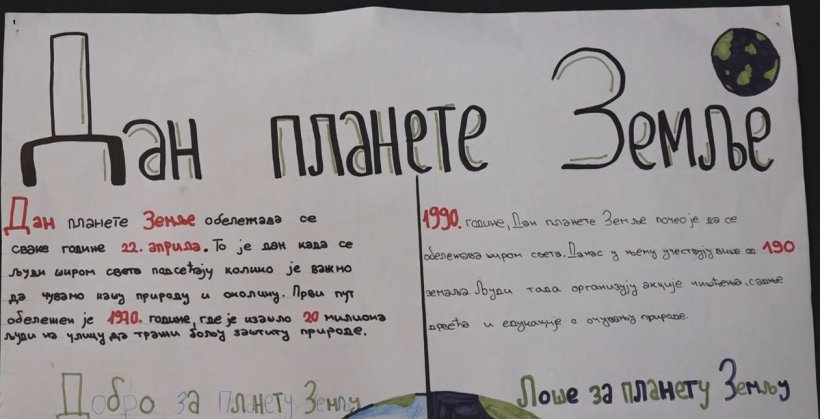 Дан планете Земље
Дан планете Земље обележава се
сваке године 22. априла. То је дан када се
људи широм света подсећају колико је важно
да чувамо нашу природу и околину. Први пут
обележен је 1970. године, где је изашло 20 милиона
људи на улицу да тражи бољу заштиту природе.
1990. године, Дан планете Земље почео је да се
обележава широм света. Данас у њему учествују више од 190
земаља. Људи тада организују акције чишћења, садње
дрвећа и едукације о очувању природе.
Добро за планету Земљу
Лоше за планету Земљу